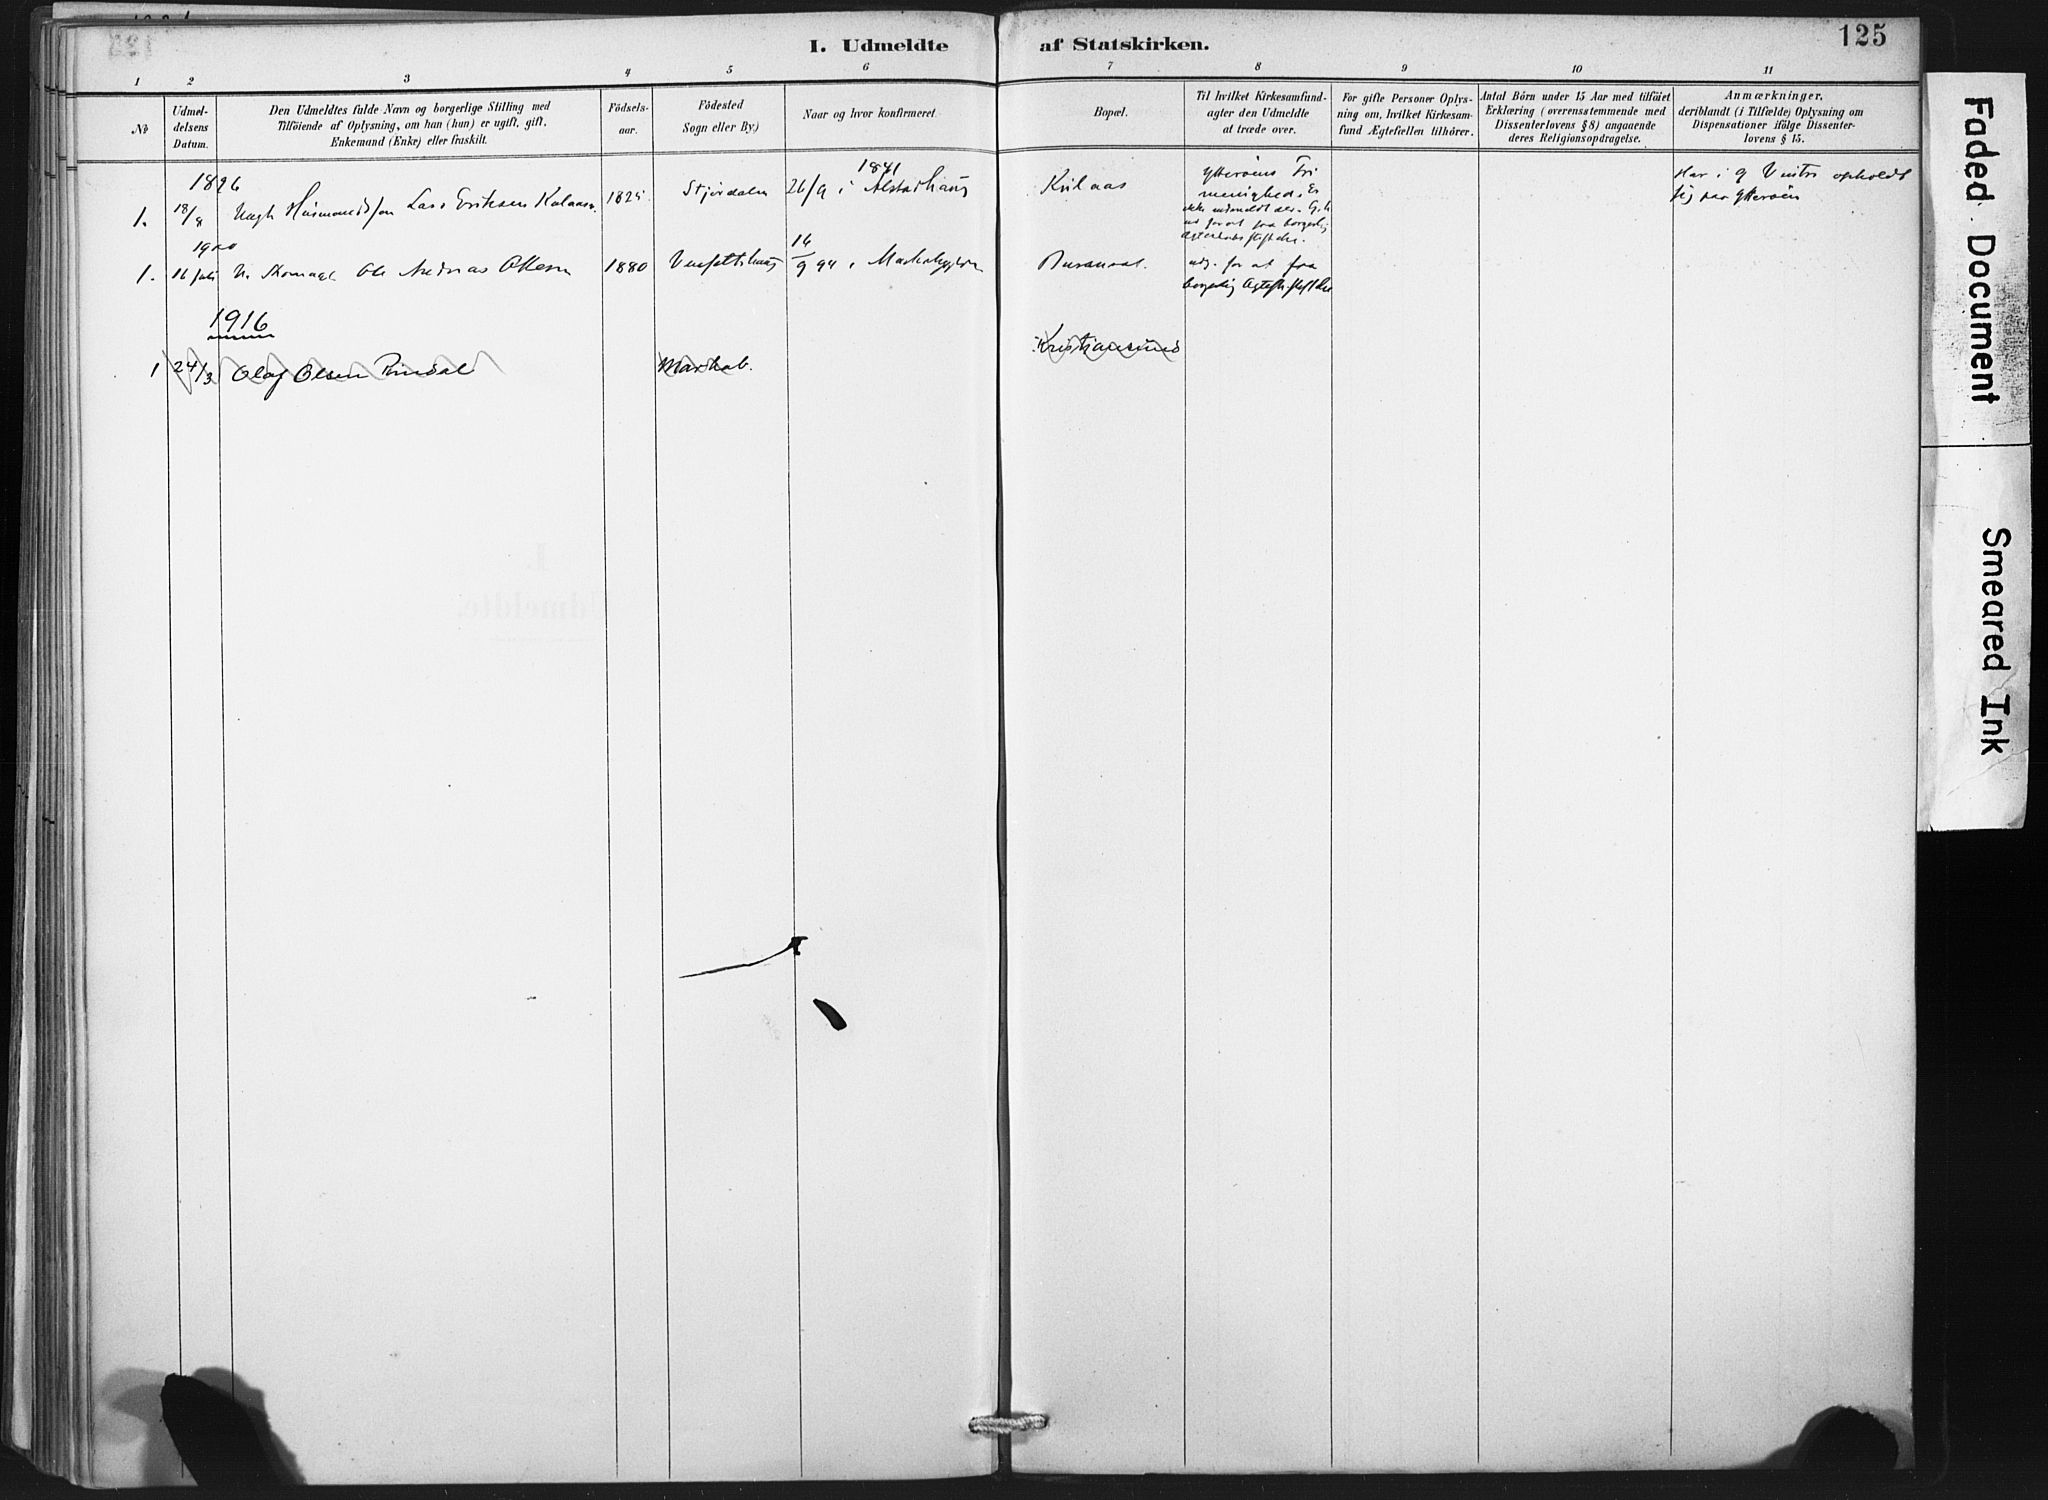 I. Udmeldte af Statskirken.
125
1 2 3 4 5 6 7 8 9 10 11
No
Udmel-
delsens
Datum.
Den Udmeldtes fulde Navn og borgerlige Stilling med
Tilföiende af Oplysning, om han (hun) er ugift, gift,
Enkemand (Enke) eller fraskilt.
Födsels-
aar.
Födested
Sogn eller By.)
Naar og hvor konfirmeret.
Bopæl.
Til hvilket Kirkesamfund-
agter den Udmeldte
at træde over.
For gifte Personer Oplys-
ning om, hvilket Kirkesam-
fund Ægtefællen tilhörer.
Antal Börn under 15 Aar med tilföiet
Erklæring (overensstemmende med
Dissenterlovens § 8) angaaende
deres Religionsopdragelse.
Anmærkninger,
deriblandt (i Tilfælde) Oplysning om
Dispensationer ifölge Dissenter-
lovens § 15.
1896
1. 18/8 Ungk Husmandssøn Lars Eriksen Kulaas. 1825 Stjördalen 26/9 1841 i Alstadhaug Kulaas
Ytteröens Fri
menighed. Er
ikke udmeldt
at faa borgerlig
Har i 9 Vintre opholdt
sig paa Ytteröen
1900
1. 16 juli Ole Andreas Olsen 1880 16/9 94 i Markabygden
udg. for at faa
borgerlig
1916
1 24/3 Olaf Olsen Rindal Markab. Kristiansund
Faded Document
Smeared Ink